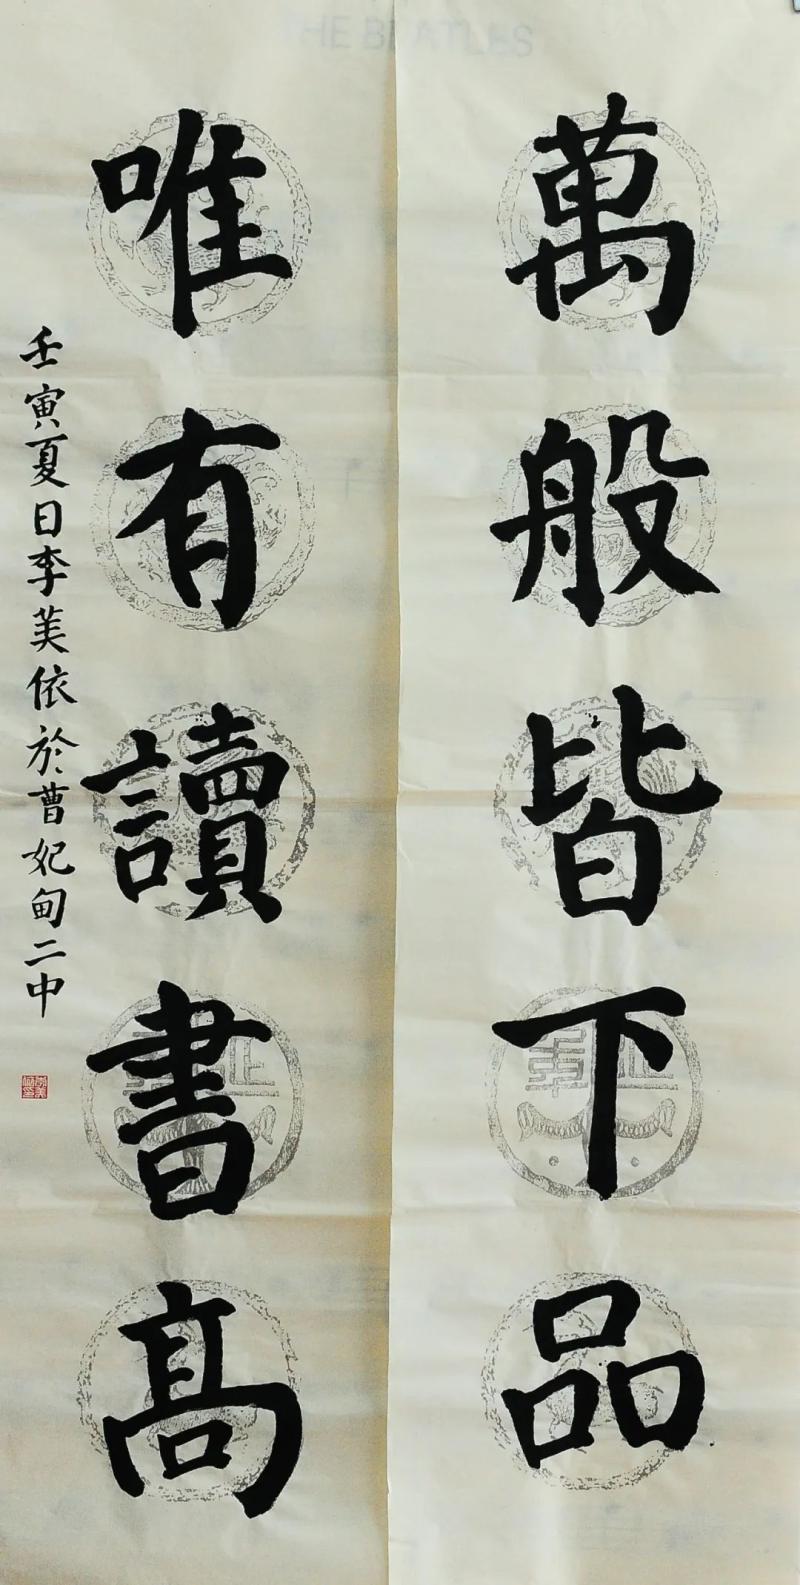 萬般皆下品
唯有讀書高
壬寅夏日李美依於曹妃甸二中
THE BEATLES